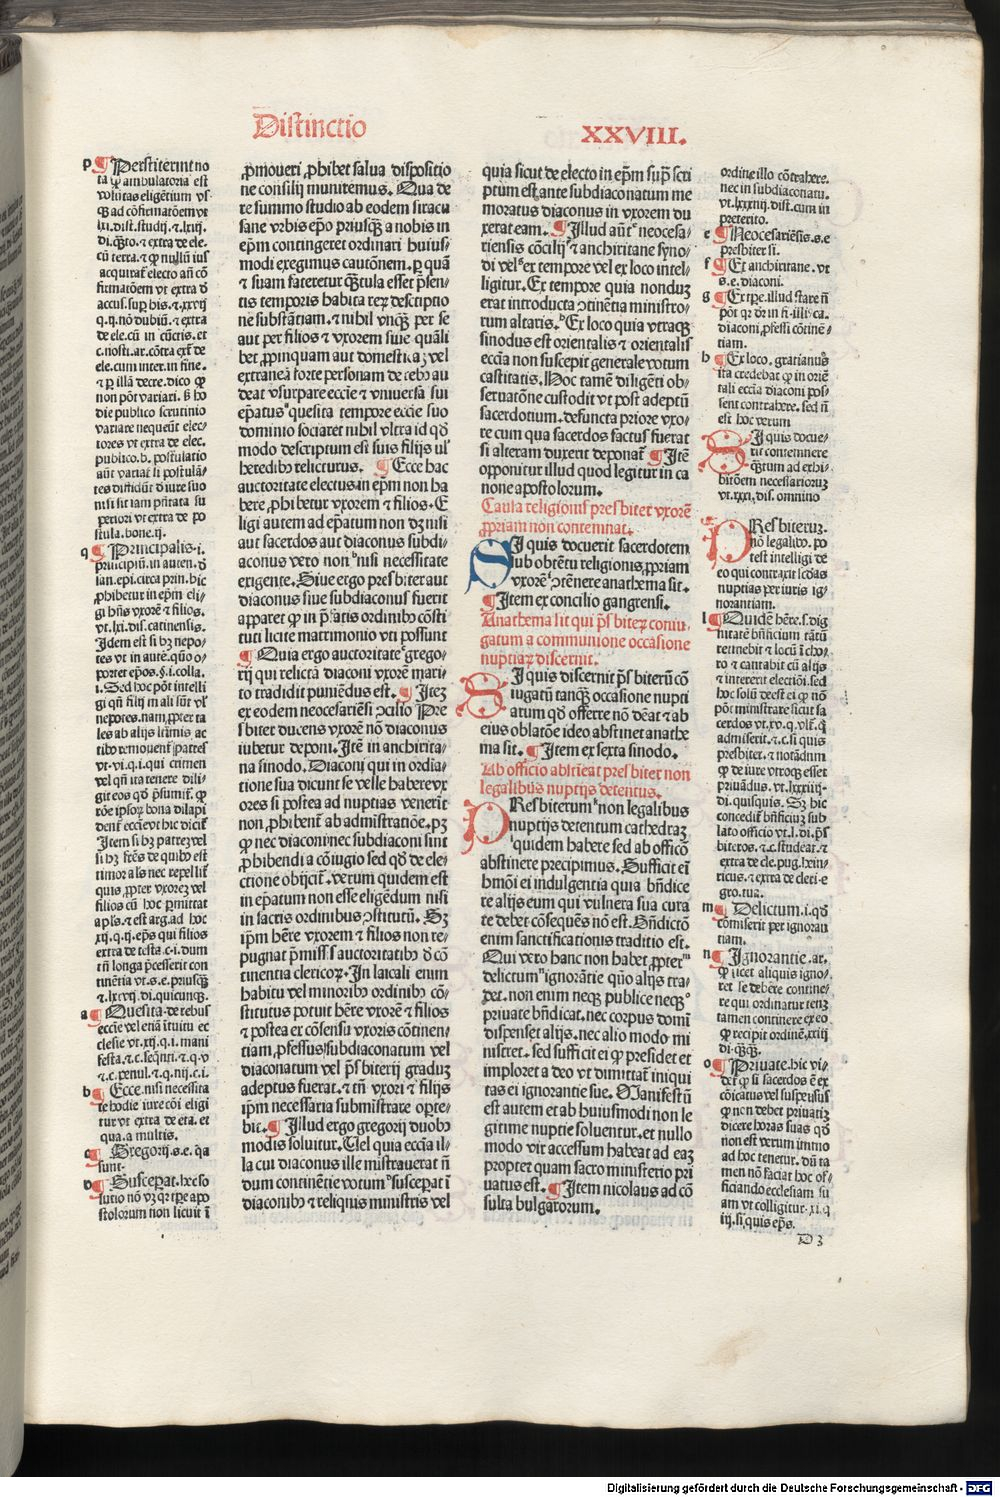 Distinctio
XXVIII.
p ¶ Perstiterint no
ta ꝙ ambulatoria est
volūtas eligētium vsꝗ
ꝗ ad cōfirmatōem vt
lxi.dist.studij.⁊.lxiij.
di.ꝗ̄to.⁊ extra de ele.
cū terra.⁊ ꝙ nullū ius
acquirat̄ electo an̄ cō
firmatōem vt extra ꝺ
accus.suꝑ his.⁊.xxvij
q.ij.nō dubiū.⁊ extra
de ele.cū in cūctis.et
c.nosti.ar.cōtra ext̄ de
ele.cum inter.in fine.
⁊ ꝑ illā decre.dico ꝙ
non pōt variari. ho
die publico scrutinio
variare nequeūt elec⸗
tores vt extra de elec.
publico.h. postulatio
aūt variat̄ si postulā⸗
tes diffidūt ꝺ iure suo
nisi sit iam p̄ntata su
periori vt extra de po
stula.bone.ij.
q ¶ Principalis.i.
principū.in auten.ꝺ
san.epi.circa prin.hic
ꝓhibetur in ep̄m eli⸗
gi hn̄s vxorē ⁊ filios.
vt.lxi.dis.catinensis.
Idem est si hꝫ nepo⸗
tes vt in autē.quō o⸗
portet ep̄os.§.i.colla.
i. Sed hoc pōt intelli
gi qn̄ filij m ali sūt vl̓
nepotes.nam ꝓpter ta
les ab alijs l̓imis ac
tibꝫ remouent̄ patres
vt.vi.q.i.qui crimen
vel qn̄ ita tenere dili⸗
git eos qd̓ p̄sumit̄ ꝙ
rōe ipsoꝝ bona dilapi
dent̄ eccl̓e vt hic dicit̄
Item si hꝫ patrē vel
si hꝫ fr̄es de quibꝫ est
timor als nec repellit̄
quis ꝓpter vxorē vel
filios cū hoc ꝑmittat
apl̓s.⁊ est arg.ad hoc
xij.q.ij.ep̄s qui filios
extra de testa.c.i.dum
tn̄ longa p̄cesserit con
tinētia vt.s.e.priusꝗ̄
⁊.lxxvij.di.quicunqꝫ.
a ¶ Quesita.de rebus
eccl̓ie vel etiā ītuitu ec
clesie vt.xij.q.i.mani
festa.⁊.c.seqn̄ti.⁊.q.v
⁊.c.penul.⁊.q.iij.c.i.
b ¶ Ecce.nisi necessita
te hodie iure cōi eligi
tur vt extra de eta.et
qua.a multis.
c ¶ Gregorij.s.e.qa
sunt.
d ¶ Susceperat.hec so
lutio nō vꝫ qꝛ tꝑe apo
stolorum non licuit ī
ꝓmoueri ꝓhibet salua dispositio
ne consilij munitemus. Qua de
re summo studio ab eodem siracu
sane vrbis ep̄o priusꝗ̄ a nobis in
ep̄m contingeret ordinari huius⸗
modi exegimus cautōnem.ꝑ quā
⁊ suam fateretur ꝗ̄tula esset p̄sen⸗
tis temporis habita reꝝ desctiptio
ne substātiam.⁊ nihil vnqꝫ per se
aut per filios ⁊ vxorem siue quāli
bet ꝓpinquam aut domesticā vel
extraneā forte personam de rebꝫ au
deat vsurpare eccl̓ie ⁊ vniuersa sui
ep̄atus quesita tempore eccl̓ie suo
dominio sociaret nihil vltra id qd̓
modo descriptum est suis filijs vl̓
heredibꝫ relicturus. ¶ Ecce hac
auctoritate electus in ep̄m non ha
bere ꝓhibetur vxorem ⁊ filios. E
ligi autem ad ep̄atum non dꝫ nisi
aut sacerdos aut diaconus subdi⸗
aconus vero non nisi necessitate
exigente. Siue ergo presbiter aut
diaconus siue subdiaconus fuerit
apparet ꝙ in p̄fatis ordinibꝫ cōsti
tuti licite matrimonio vti possunt
¶ Quia ergo auctoritate gregor
rij qui relictā diaconi vxorē mari⸗
to tradidit puniēdus est. ¶ Iteꝫ
ex eodem neocesariēsi ꝯcilio Pre
sbiter ducens vxorē nō diaconus
iubetur deponi. Itē in anchirita⸗
na sinodo. Diaconi qui in ordia⸗
tione sua dicunt se velle habere vx
ores si postea ad nuptias venerīt
non ꝓhibent̄ ab admistratiōe.pꝫ
ꝙ nec diaconi nec subdiaconi sint
ꝓhibendi a cōiugio sed qd̓ de ele⸗
ctione obijcit̄.verum quidem est
in ep̄atum non esse eligēdum nisi
in sacris ordinibus ꝯstitutū. Sꝫ
ip̄m hēre vxorem ⁊ filios non re⸗
pugnat p̄miss̄ auctoritatibꝫ ꝺ cō
tinentia clericoꝝ. In laicali enim
habitu vel minoribꝫ ordinibꝫ cō⸗
stitutus potuit hēre vxorē ⁊ filios
⁊ postea ex cōsensu vxoris cōtinen⸗
tiam ꝓfessus subdiaconatum vel
diaconatum vel p̄sbiterij graduꝫ
adeptus fuerat.⁊ tn̄ vxori ⁊ filijs
ip̄m necessaria submīstrare oꝑte⸗
bit̄. ¶ Illud ergo gregorij duobꝫ
modis soluitur. Uel quia eccl̓ia il⸗
la cui diaconus ille mistrauerat n̄
dum continētie votum susceperat ī
diaconibꝫ ⁊ reliquis ministris vel
quia sicut de electo in ep̄m supͣ scri
ptum est ante subdiaconatum me
moratus diaconus in vxorem du
xerat eam. ¶ Illud aūt neocesa⸗
riensis cōcilij ⁊ anchiritane syno⸗
di vel ex tempore vel ex loco intel⸗
ligitur. Ex tempore quia nonduꝫ
erat introducta ꝯtinētia ministro⸗
rum altaris. Ex loco quia vtraqꝫ
sinodus est orientalis ⁊ orientalis
eccl̓ia non suscepit generale votum
castitatis. Hoc tamē diligēti ob⸗
seruatōne custodit̄ vt post adeptū
sacerdotium.defuncta priore vxo⸗
re cum qua sacerdos factus fuerat
si alteram duxerit deponat̄ ¶ Itē
opponitur illud quod legitur in ca
none apostolorum.
Causa religionis presbiter vxorē
ꝓpriam non contemnat.
SI quis docuerit sacerdotem
sub obtētu religionis ꝓpriam
vxorē ꝯtēnere anathema sit.
¶ Item ex concilio gangrensi.
Anathema sit qui p̄sbiteꝝ coniu⸗
gatum a communione occasione
nuptiaꝝ discernit.
SI quis discernit p̄sbiterū cō
iugatū tanqꝫ occasione nupti
atum qd̓ offerre nō deat ⁊ ab
eius oblatōe ideo abstinet anathe
ma sit. ¶ Item ex sexta sinodo.
Ab officio abstīeat presbiter non
legalibus nuptijs detentus.
PResbiterum non legalibus
nuptijs detentum cathedraꝫ
quidem habere sed ab officō
abstinere precipimus. Sufficit ei
hmōi ei indulgentia quia bn̄dice
re alijs eum qui vulnera sua cura
te debet cōsequēs nō est. Bn̄dictō
enim sanctificationis traditio est.
Qui vero hanc non habet ꝓpter
delictum ignorātie quō alijs tra⸗
det.non enim neqꝫ publice neqꝫ
priuate bn̄dicat.nec corpus domī
dispenset alijs.nec alio modo mi
nistret.sed sufficit ei ꝙ presidet et
imploret a deo vt dimittat̄ iniqui
tas ei ignorantie sue. Manifestū
est autem et ab huiusmodi non le
gitime nuptie soluentur.et nullo
modo vir accessum habeat ad eaꝫ
propter quam sacro ministerio pri
uatus est. ¶ Item nicolaus ad cō
sulta bulgarorum.
ordine illo cōtrahere.
nec in subdiaconatu.
vt.lxxxiiij.dist.cum in
preterito.
e ¶ Neocesariēsis.s.e
presbiter si.
f ¶ Et anchiritane.vt
s.e.diaconi.
g ¶ Ex tꝑe.illud stare n̄
pōt qꝛ dr̄ in fi.illi⸗ca.
diaconi.ꝓfessi cōtinē⸗
tiam.
h ¶ Ex loco.gratianus
ita credebat ꝙ in oriē
tali eccl̓ia diaconi pos⸗
sent contrahere.sed n̄
est hoc verum
SI quis docue⸗
rit contemnere
ꝗ̄tum ad exhi⸗
bitōem necessarioruꝫ
vt.xxxi.dis.omnino
PResbiteruꝫ.
nō legalibꝫ.po
test intelligi de
eo qui contraxit s̄cdas
nuptias per iuris ig⸗
norantiam.
l ¶ Quidē hēre.s.dig
nitatē bn̄ficium tātū
retinebit ⁊ locū ī cho⸗
ro ⁊ cantabit cū alijs
⁊ intererit electiōi.sed
hoc solū deest ei ꝙ nō
pōt ministrare sicut sa
cerdos vt.xv.q.vlt̄.ꝗ
admiserit.⁊.c.si quis
presbiter.⁊ notādum
ꝙ de iure vtroqꝫ esset
priuādus.vt.lxxxiiij⸗
di.quisquis. Sꝫ hic
concedit̄ bn̄ficiuꝫ sub
lato officio vt.l.di.p̄s
biteros.⁊.c.studeat.⁊
extra de cle.pug.hein⸗
ricus.⁊ extra de cleri.e
gro.tua.
m ¶ Delictum.i.qd̓
cōmiserit per ignoran
tiam.
n ¶ Ignorantie.ar.
ꝙ licet aliquis igno⸗
ret se debere contine⸗
re qui ordinatur tenꝫ
tamen continere ex eo
ꝙ recipit ordinē.xxiij
di.ꝗ̄ꝗ̄.
o ¶ Priuate.hic vi⸗
det̄ ꝙ si sacerdos ē ex
cōicatus vel suspensus
ꝙ non debet priuatiꝫ
dicere horas suas qd̓
non est verum immo
ad hoc tenetur.dū ta
men nō faciat hoc of⸗
ficiando ecclesiam su
am vt colligitur.xi.q
iij.si quis ep̄s.
D 3
Digitalisierung gefördert durch die Deutsche Forschungsgemeinschaft - DFG